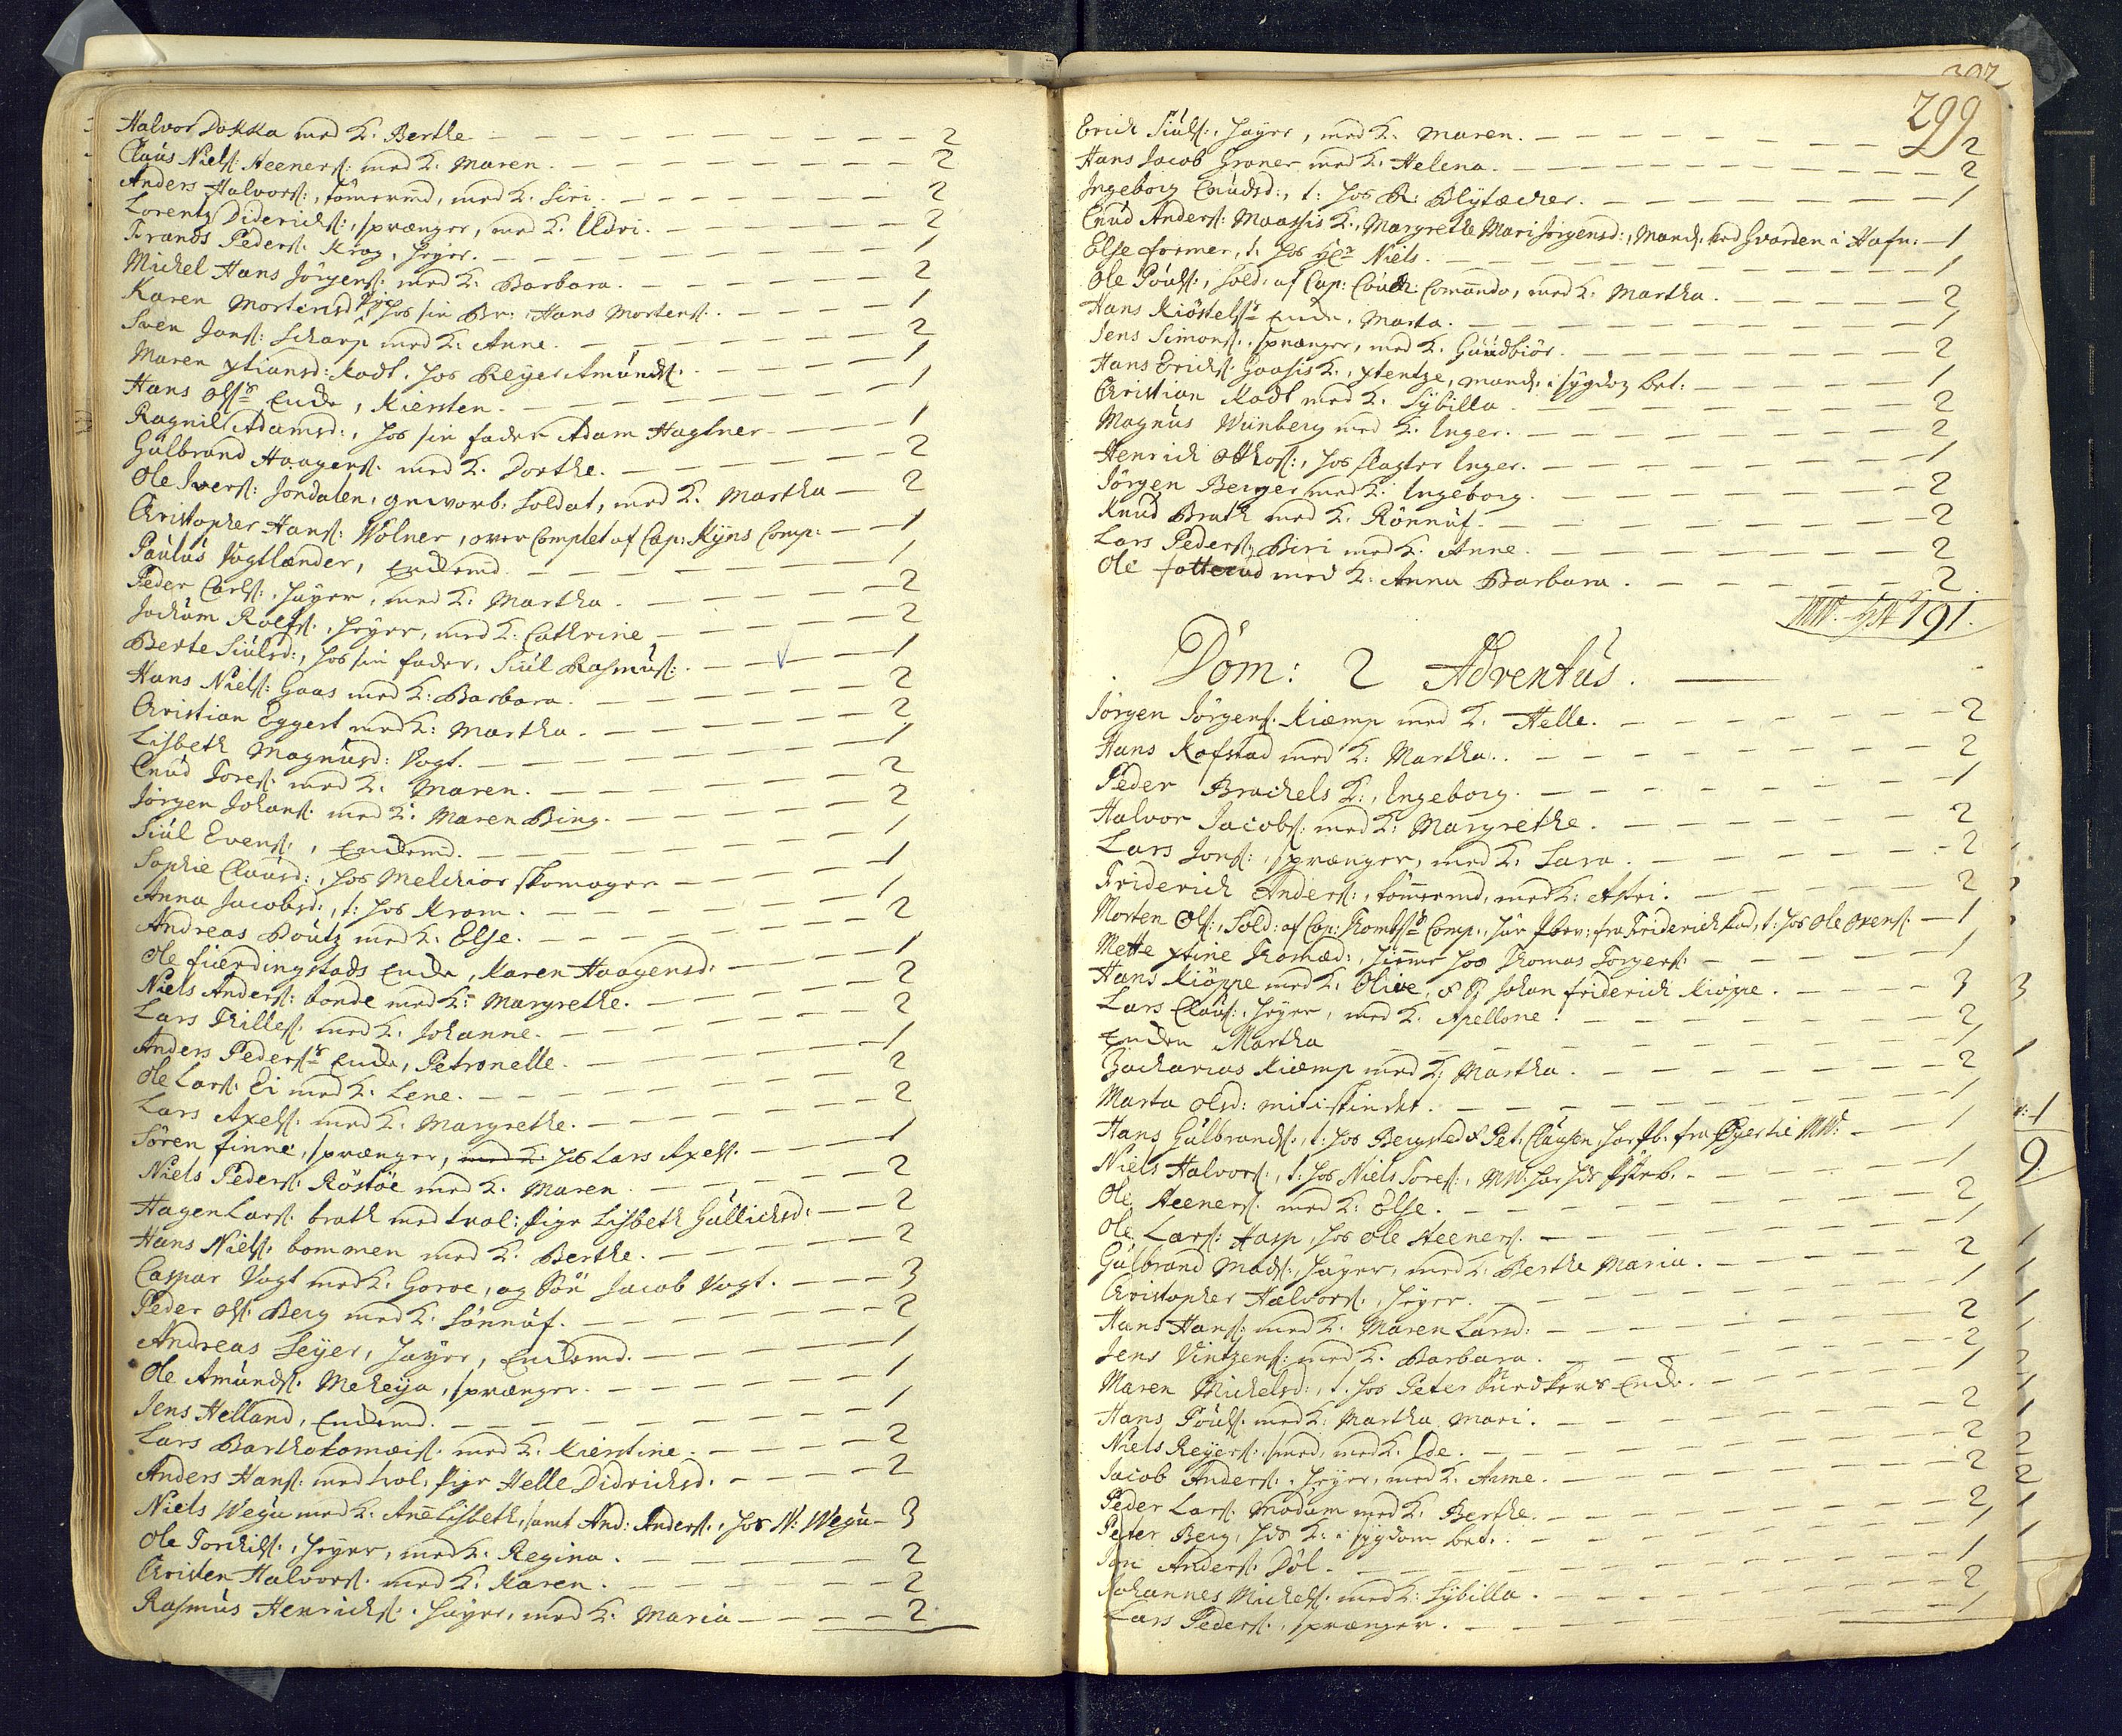 Halvor Dokka med K. Berthe - 2
Claus Niels: Steeners: med K. Maren. - 2
Anders Halvors:, tömermd, med K. Siri. - 2
Lorentz Diderichs:, sprænger, med K. Uldri. - 2
Frands Peders. Krog, Heyer. - 1
Michel Hans Jörgens: med K. Barbara. - 2
Karen Mortensd: Pige hos sin Br: Hans Mortens. - 1
Sven Jans: Scharp med K. Anne. - 2
Maren xtiansd: Kadt. hos Reyer Amunds. - 1
Hans Ols: Encke, Kiersten. - 1
Ragnil Adamsd:, hos sin fader Adam Hagtner - 1
Gulbrand Haagens. med K. Dorthe. - 2
Ole Ivers: Jondalen, gevorb. soldat, med K. Martha - 2
Christopher Hans: Wolner, over Complet af Cap: Kyns Comp: - 1
Paulus Vogtlænder, Enckemd. - 1
Peder Carls:, Häyer, med K: Martha. - 2
Jochum Rolfs:, Heyer, med K: Cathrine - 2
Berte Siulsd:, hos sin fader, Siul Rasmus: - 1
Hans Niels: Gaas med K: Barbara. - 2
Christian Eggert med K: Martha. - 2
Lisbeth Magnusd: Vogt. - 1
Cnud Tores. med K. Maren. - 2
Jörgen Johans. med K: Maren Bing. - 2
Siul Evens:, Enckemd. - 1
Sophie Clausd:, hos Melchior skomager - 1
Anna Jacobsd:, t: hos Kram. - 1
Andreas Boutz med K. Else. - 2
Ole fierdingstads Encke, Karen Haagensd: - 1
Niels Anders: bonde med K: Margrethe. - 2
Lars Thilles. med K. Johanne. - 2
Anders Peders: Encke, Petronelle. - 1
Ole Lars. Ei med K. Lene. - 2
Lars Axels. med K. Margrethe. - 2
Sören finne, sprænger, med K. hos Lars Axels. - 1
Niels Peders. Röstöe med K. Maren. - 2
Hagen Lars. brath med trol: pige Lisbeth Gullichsd: - 2
Hans Niels. bommen med K. Berthe. - 2
Caspar Vogt med K. Goroe, og Sön Jacob Vogt. - 3
Peder Ols. Berg med K. Sönnuf. - 2
Andreas Seyer, Häyer, Enckemd. - 1
Ole Amunds. Meheya, sprænger. - 1
Jens Helland, Enckemd. - 1
Lars Bartholomæis. med K. Kierstine. - 2
Anders Hans: med trol. pige Helle Didrichsd. - 2
Niels Wegu med K. Ane Lisbeth, samt And: Anders:, hos N: Wegu - 3
Ole Torchils:, Heyer, med K. Regina. - 2
Christen Halvors. med K. Karen. - 2
Rasmus Henrichs:, Häyer, med K. Maria - 2
299
Erich Siuls:, Häyer, med K. Maren. - 2
Hans Jacob Graner med K. Helena. - 2
Ingeborg Cnudsd:, t: hos R: Blytæcher. - 1
Cnud Anders: Maassis K., Margrethe Mari Jörgensd:, Mand. ved Gvarden i Hafn. - 1
Else former, t. hos Hr Niels. - 1
Ole Pouls:, sold. af Cap: Comando, med K. Martha. - 2
Hans Kiöstels: Encke, Marta. - 1
Jens Simons:, sprænger, med K. Gundbiör. - 2
Hans Erichs. Gaasis K., xtentze, mand. i sygdom bet: - 1
Christian Kadt med K. Sybilla. - 2
Magnus Wünberg med K. Inger. - 2
Henrich Ottos:, hos slagter Inger. - 1
Jörgen Berger med K. Ingeborg. - 2
Knud Brath med K. Rönnuf. - 2
Lars Peders. Biri med K. Anne. - 2
Ole fotterud med K. Anna Barbara. - 2
191.
Dom: 2 Adventus.
Jörgen Jörgens. Kiæmp med K. Helle. - 2
Hans Rafstad med K: Martha. - 2
Peder Brachels K:, Ingeborg. - 1
Halvor Jacobs: med K: Margrethe. - 2
Lars Jons:, sprænger, med K. Sara. - 2
Friderich Anders:, tömermd, med K: Astri. - 2
Morten Ols:, Sold: af Cap: Comp., har fra Friderichstad, t: hos Ole Ovens: - 1
Mette xtine Thomæd:, hiemme hos Thomas Torgers: - 1
Hans Kiöppe med K. Olive, & S. Johan friderich Kiöppe. - 3
Lars Claus:, Heyer, med K. Apellone. - 2
Encken Martha - 1
Zacharias Kiæmp med K: Martha. - 2
Marta Olsd: - 1
Hans Gulbrands., t: hos Bergsted & Pet. Clausen, fra - 1
Niels Halvors:, t: hos Niels Tores: - 1
Ole Steeners. med K: Else. - 2
Ole Lars: Hasp, hos Ole Steeners. - 1
Gulbrand Mads:, Häyer, med K. Berthe Maria. - 2
Christopher Halvors., Heyer. - 1
Hans Hans: med K. Maren Larsd: - 2
Jens Vintzens: med K. Barbara. - 2
Maren Michelsd:, t. hos Peter bundkers Encke. - 1
Hans Pouls. med K: Martha Mari. - 2
Niels Reyers:, smed, med K. Ide. - 2
Jacob Anders:, Heyer, med K. Anne. - 2
Peder Lars. Modum med K. Berthe. - 2
Peter Berg, hos K. i sygdom bet. - 1
Jan Anders. Döl. - 1
Johannes Michels. med K: Sybilla. - 2
Lars Peders:, sprænger. - 1